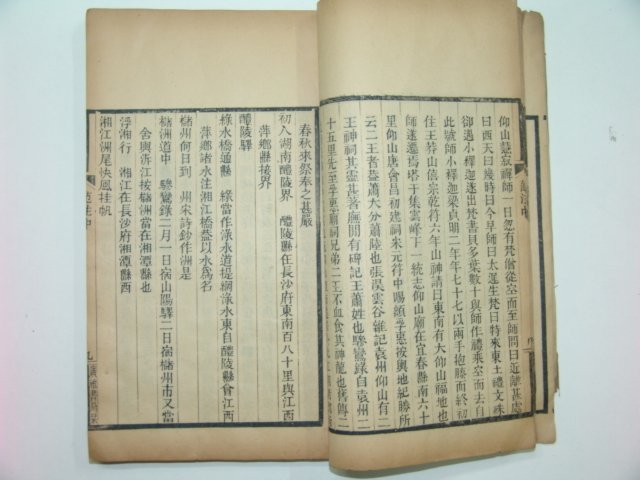 仰山慧寂禪師一日忽有梵僧從空而至師問曰近離甚處
曰西天曰幾時曰今早師曰太遲生梵曰特來東土禮文殊
卻遇小釋迦遂出梵書貝多葉數十與師作禮乘空而去自
此號師小釋迦梁貞明二年年七十七以兩手抱膝而終初
住王莽山僖宗乾符六年山神請曰東南有大仰山福地也
師遂遷焉塔于集雲峰下一統志仰山廟在宜春縣南六十
里仰山唐會昌初建祠宋元符中賜額孚惠按輿地紀勝所
云二王者蕭大分蕭陸也張淏雲谷雜記袁州仰山有二
王神祠其靈甚著廡閒有碑記王蕭姓也驂鸞錄自袁州二
十五里先至孚惠廟祠兄弟二王不血食其神龍也舊傳二
春秋來祭奉之甚嚴
初入湖南醴陵界 醴陵縣在長沙府東南百八十里與江西
萍鄉縣接界
醴陵驛
綠水橋通縣 綠當作淥水道提綱淥水東自醴陵縣會江西
萍鄉諸水注湘江橋蓋以水爲名
櫧州何日到 州宋詩鈔作洲是
櫧洲道中 驂鸞錄二月一日宿山陽驛二日宿櫧州市又當
舍輿泝江按櫧洲當在湘潭縣也
浮湘行 湘江在長沙府湘潭縣西
湘江洲尾快風挂帆
范注中
九